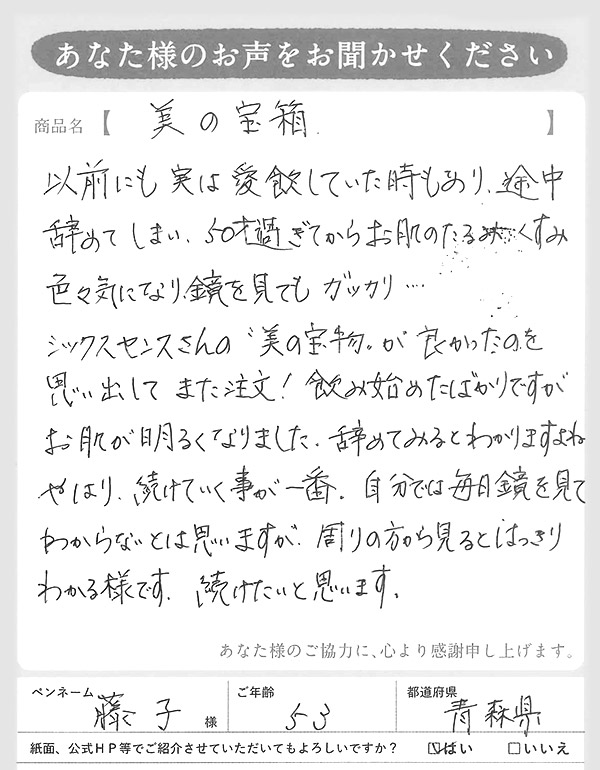 あなた様のお声をお聞かせください
商品名【 美の宝箱 】
以前にも実は愛飲していた時もあり、途中
辞めてしまい、50才過ぎてからお肌のたるみ、くすみ
色々気になり、鏡を見てもガッカリ…
シックスセンスさんの〝美の宝物〟が良かったのを
思い出してまた注文！飲み始めたばかりですが
お肌が明るくなりました。辞めてみるとわかりますよね
やはり、続けていく事が一番。自分では毎日鏡を見て
わからないとは思いますが、周りの方から見るとはっきり
わかる様です。続けたいと思います。
あなた様のご協力に、心より感謝申し上げます。
ペンネーム 藤子 様 ご年齢 53 都道府県 青森県
紙面、公式HP等でご紹介させていただいてもよろしいですか？ ☑はい □いいえ